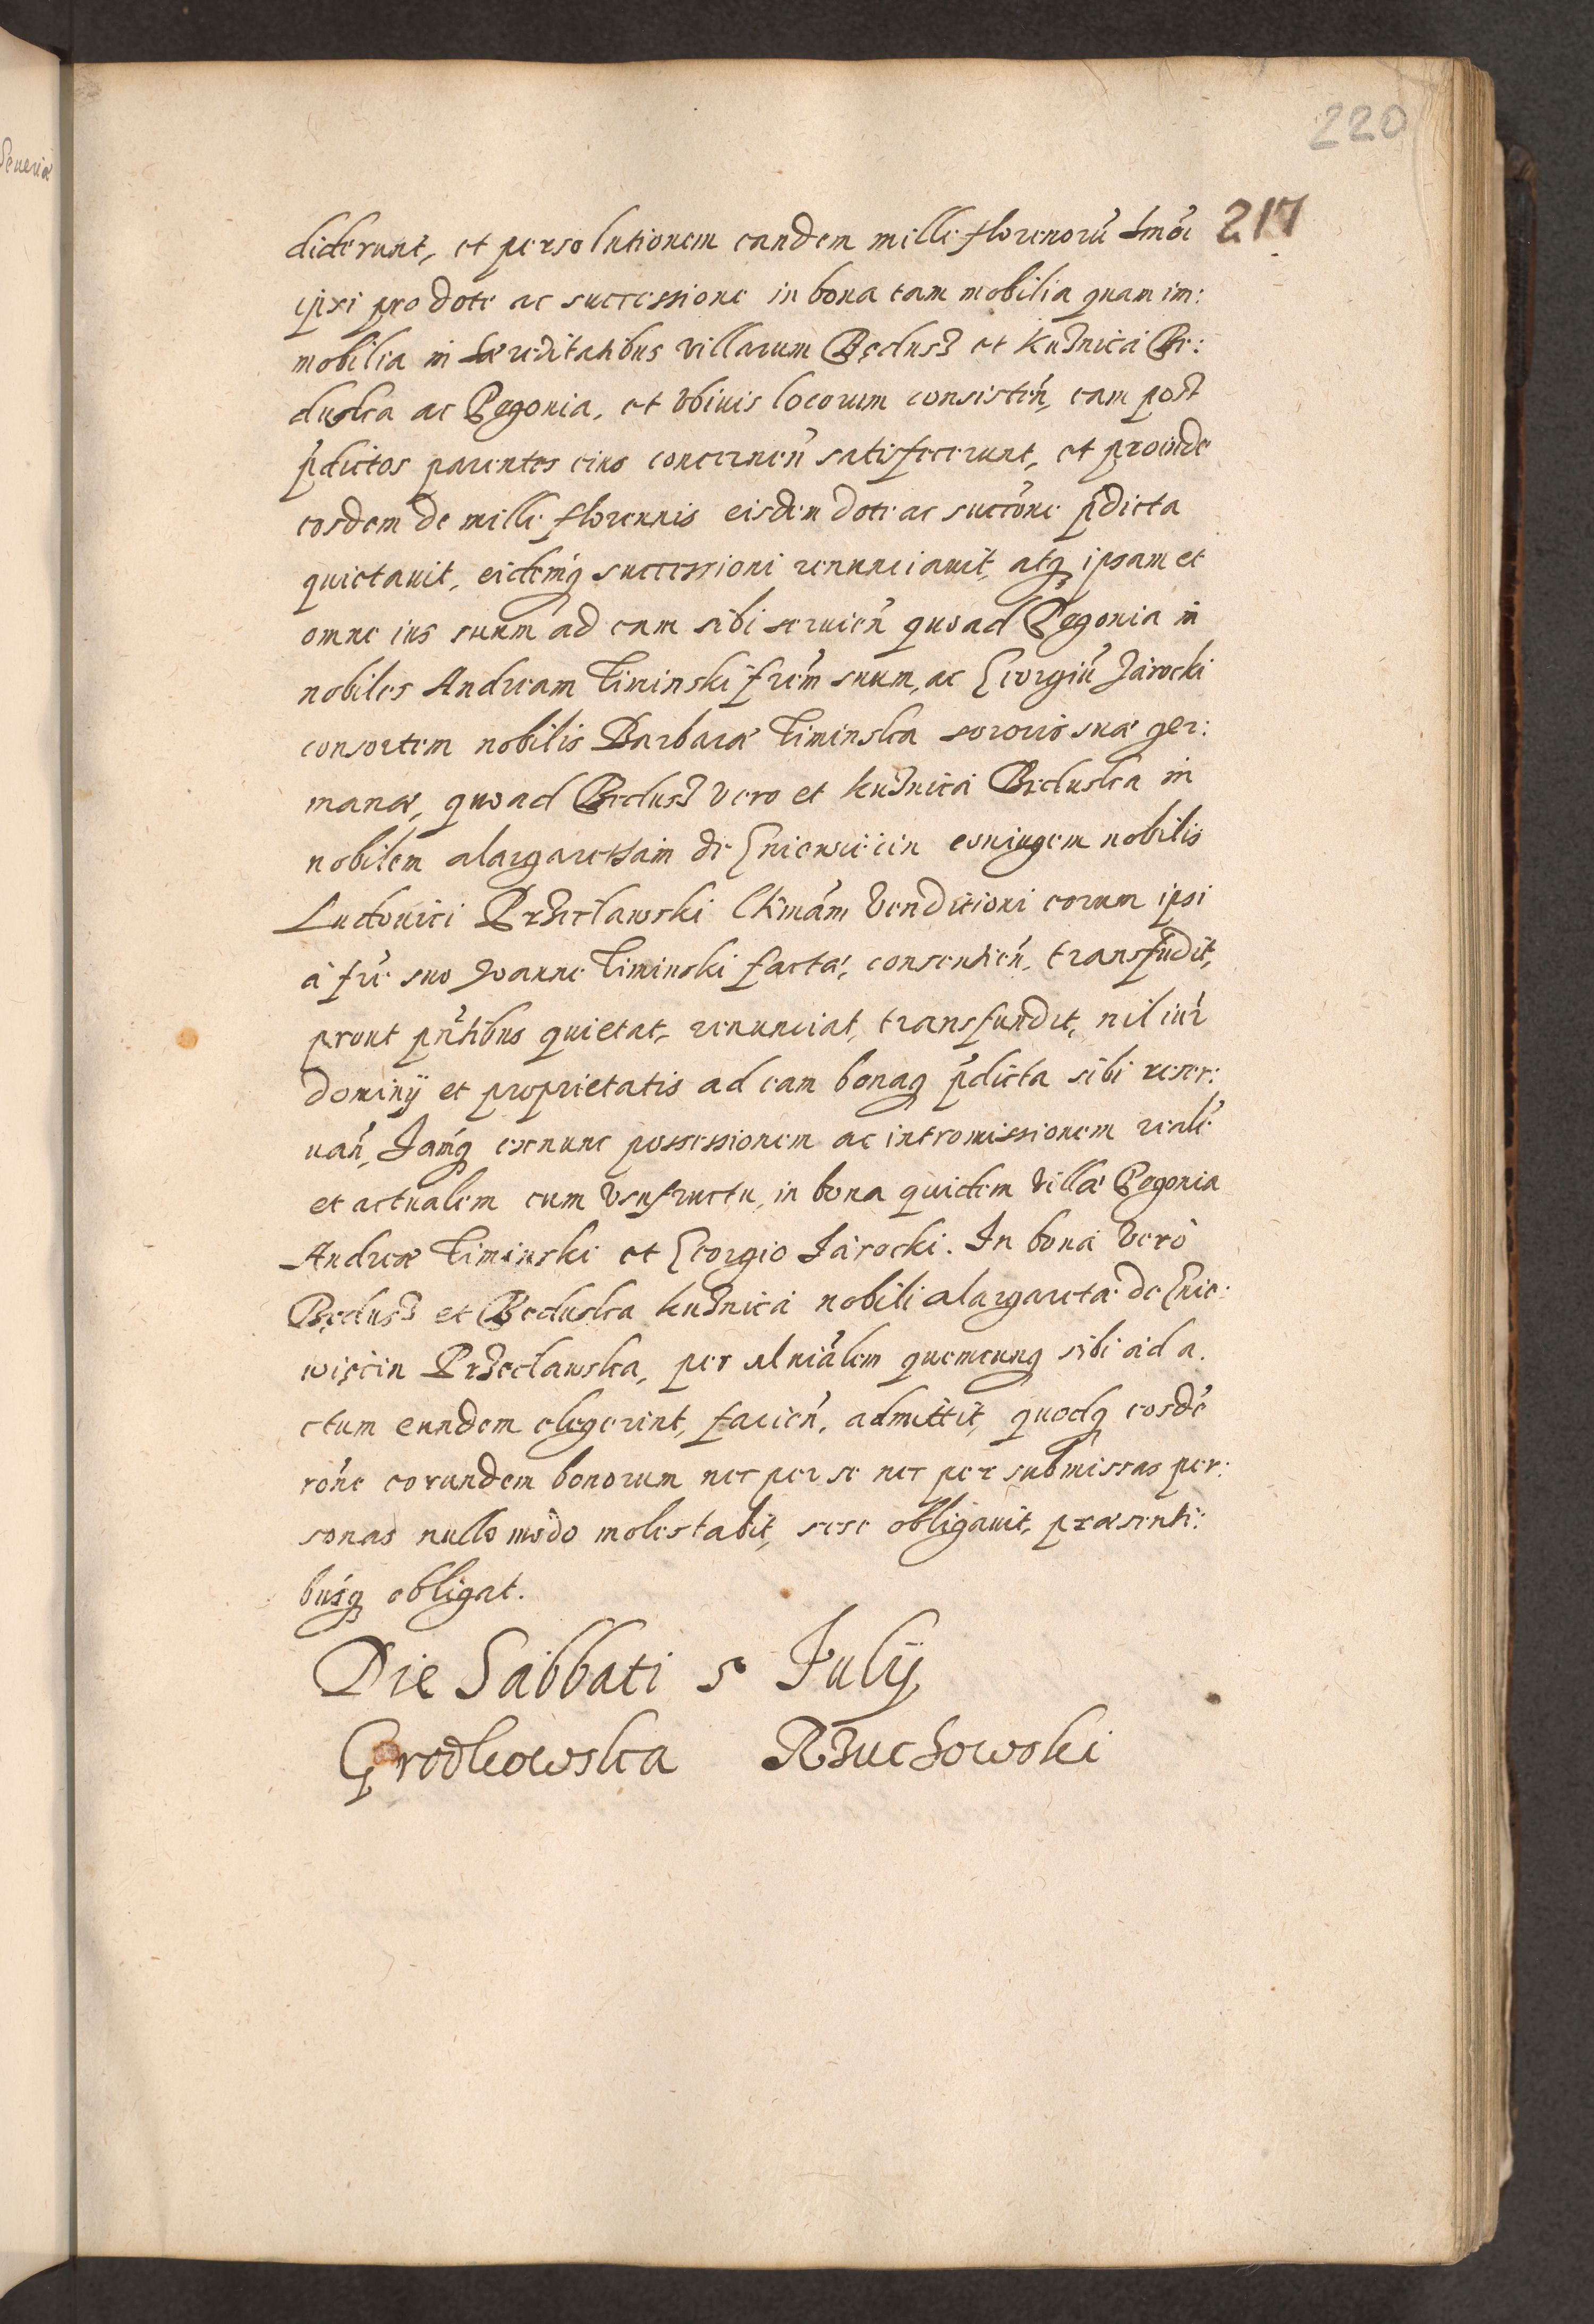 220
217
diderunt, et persolutionem eandem mille florenorũ
ipsi pro dote ac successione in bona tam mobilia quam im:
mobilia in hæreditatibus villarum Będusz et Kuznica Be:
duska ac Pogonia, et vbiuis locorum consisteñ, eam post
p̃dictos parentes eius concerneñ satisfecerunt, et proinde
eosdem de mille florennis eisdem dote ac succõne p̃dicta
quietauit, eidemq̃ successioni renunciauit, atq ipsam et
omne ius suum ad eam sibi seruieñ quoad Pogonia in
nobiles Andream Timinski frẽm suum, ac Georgiũ Jarocki
consortem nobilis Barbaræ Timinska sororis suæ ger:
manæ, quoad Bedusz vero et kuznica Beduska in
nobilem Margaretham de Gniewięcin coniugem nobilis
Ludouici Przecławski venditioni eorum ipsi
à frẽ suo Joanne Timinski factæ, consentieñ, transfudit,
prout pñtibus quietat, renunciat, transfundit, nil iur̃
dominij et proprietatis ad eam bonaq p̃dicta sibi reser:
uañ, Jamq̃ exnunc possessionem ac intromissionem realẽ
et actualem cum vsufructu, in bona quidem villæ Pogonia
Andreæ Timinski et Georgio Jarocki. In bona verò
Będusz et Beduska kuznica nobili Margaretæ de Gnie:
więcin Przecławska, per Mniãlem quemcunq sibi ad a.
ctum eundem elegerint, facieñ, admittit, quodq eosdẽ
rõne eorundem bonorum nec per se nec per submissas per:
sonas nullo modo molestabit, sese obligauit, præsenti:
busq̃ obligat.
Die Sabbati 5 Julij
Grodkowska Rzuchowski